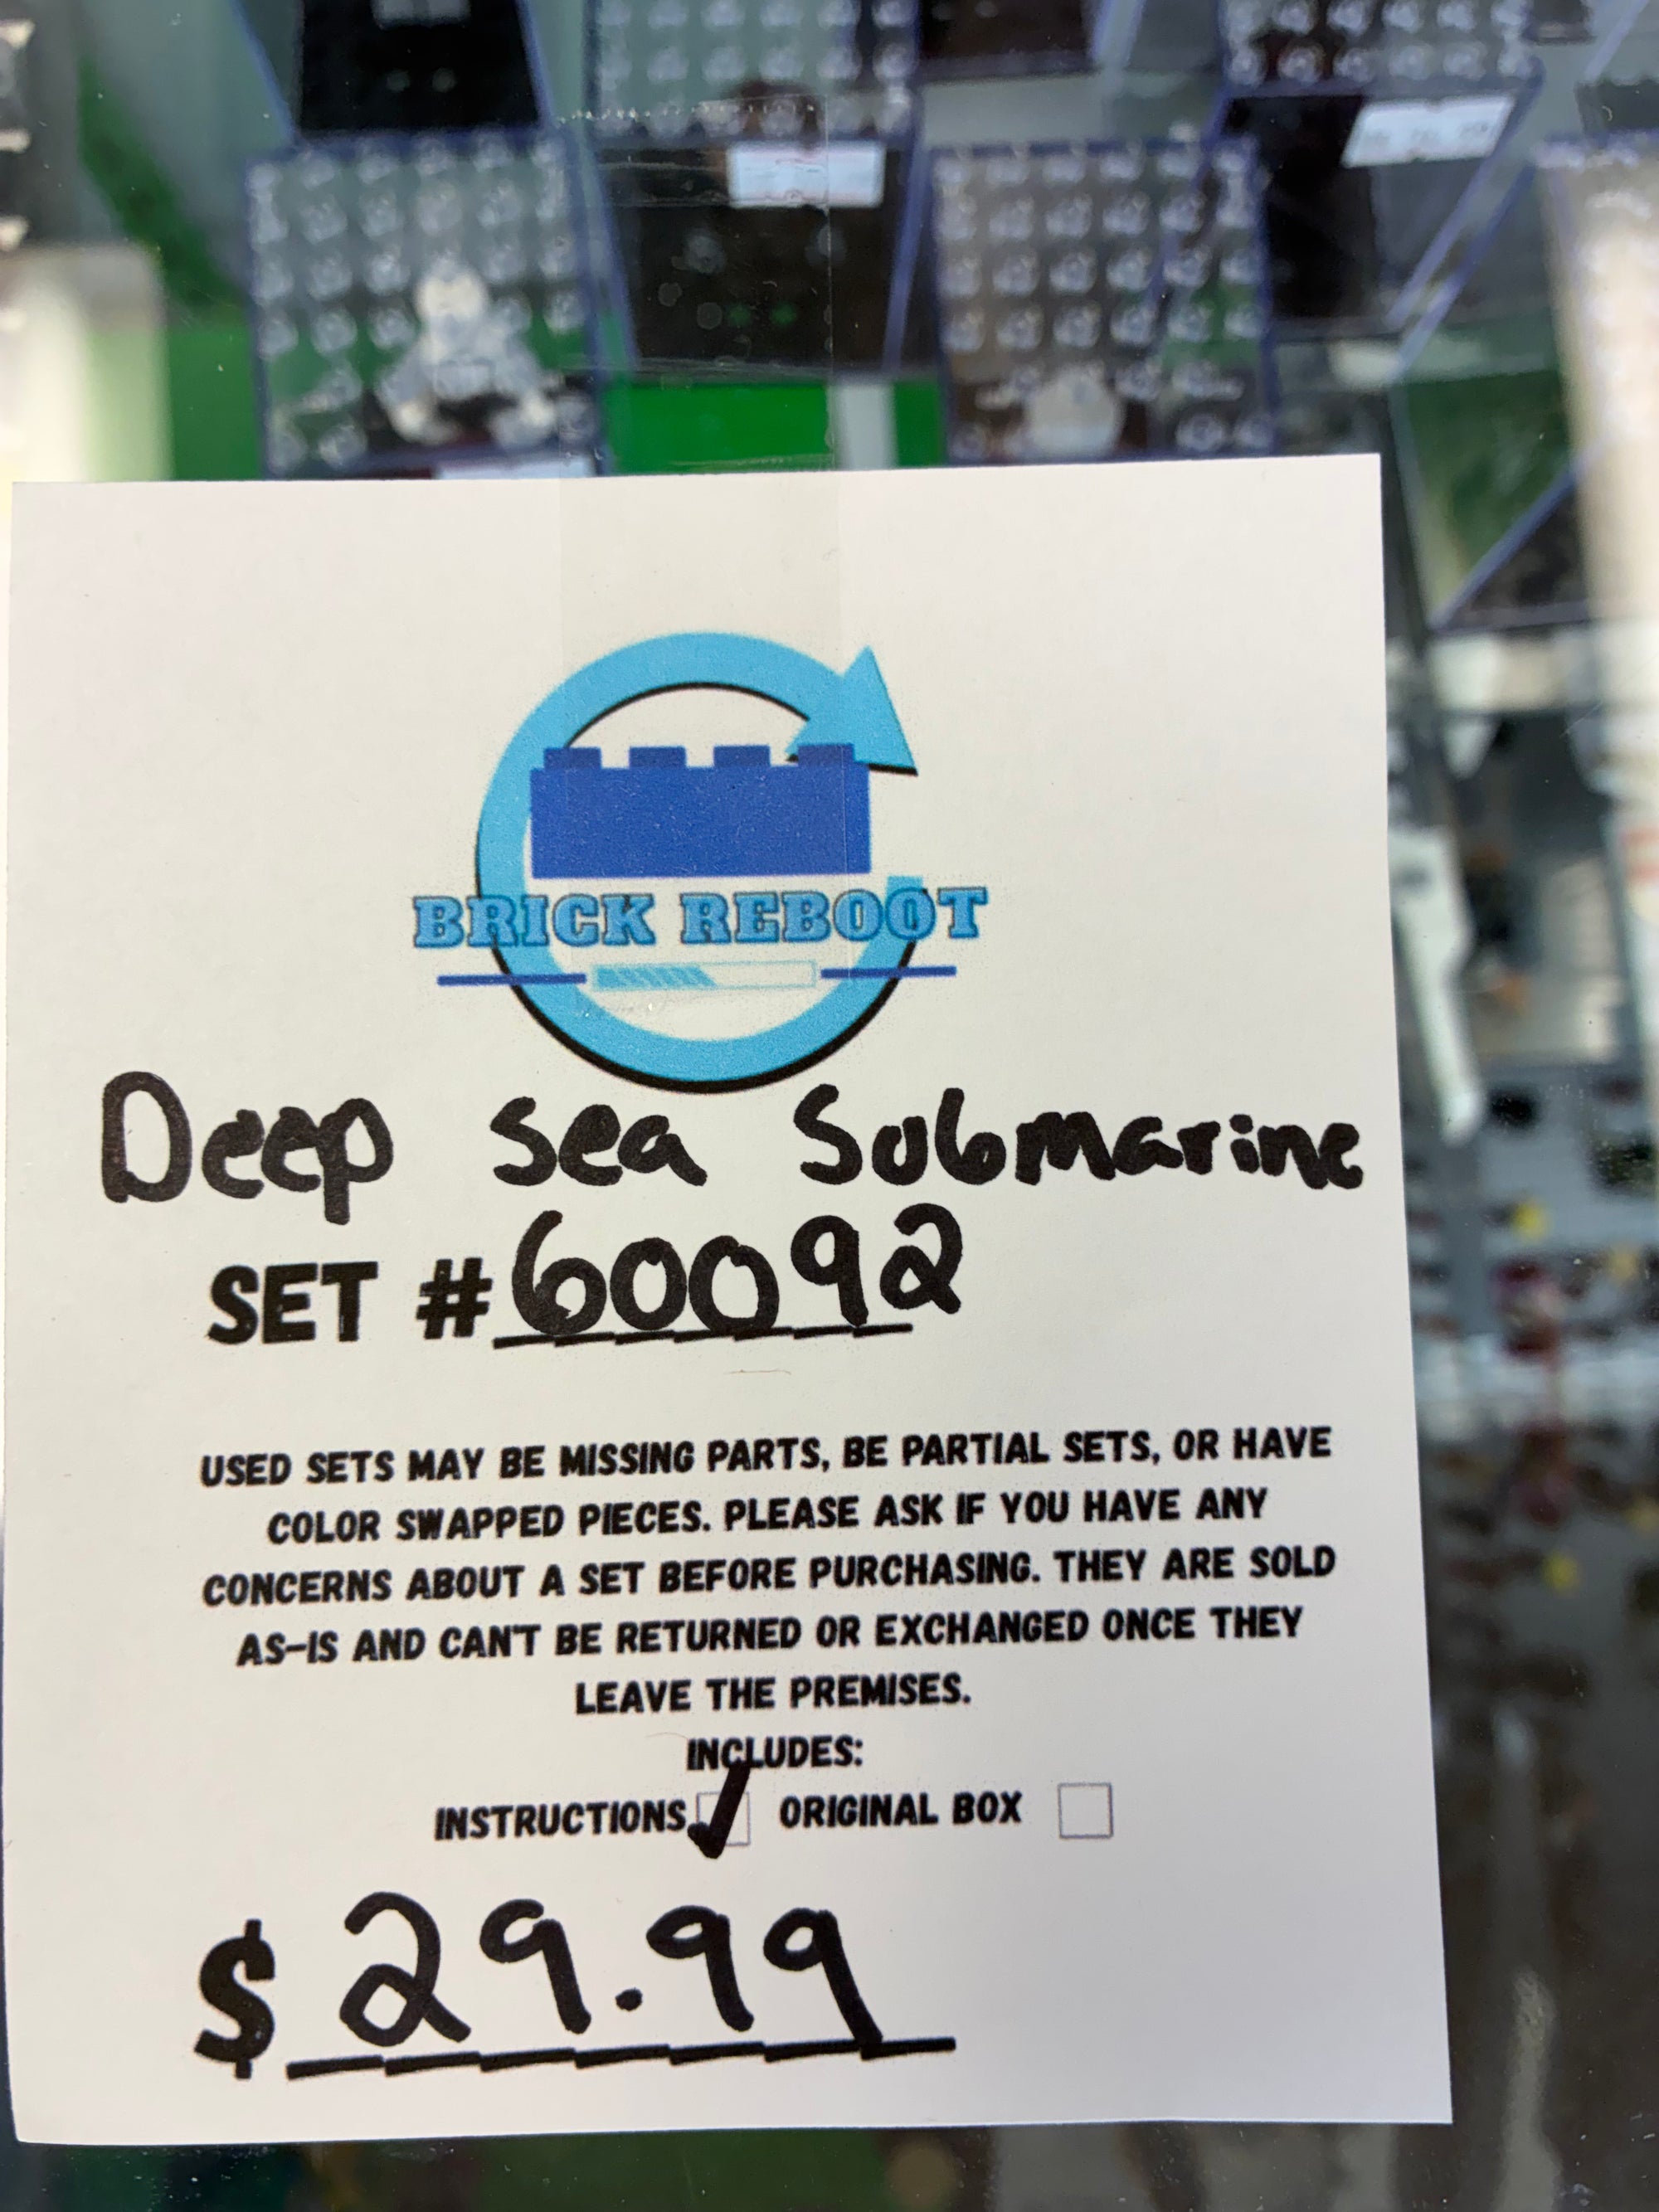 BRICK REBOOT
Deep sea Submarine
SET #60092
USED SETS MAY BE MISSING PARTS, BE PARTIAL SETS, OR HAVE
COLOR SWAPPED PIECES. PLEASE ASK IF YOU HAVE ANY
CONCERNS ABOUT A SET BEFORE PURCHASING. THEY ARE SOLD
AS-IS AND CAN'T BE RETURNED OR EXCHANGED ONCE THEY
LEAVE THE PREMISES.
INCLUDES:
INSTRUCTIONS ORIGINAL BOX
$29.99